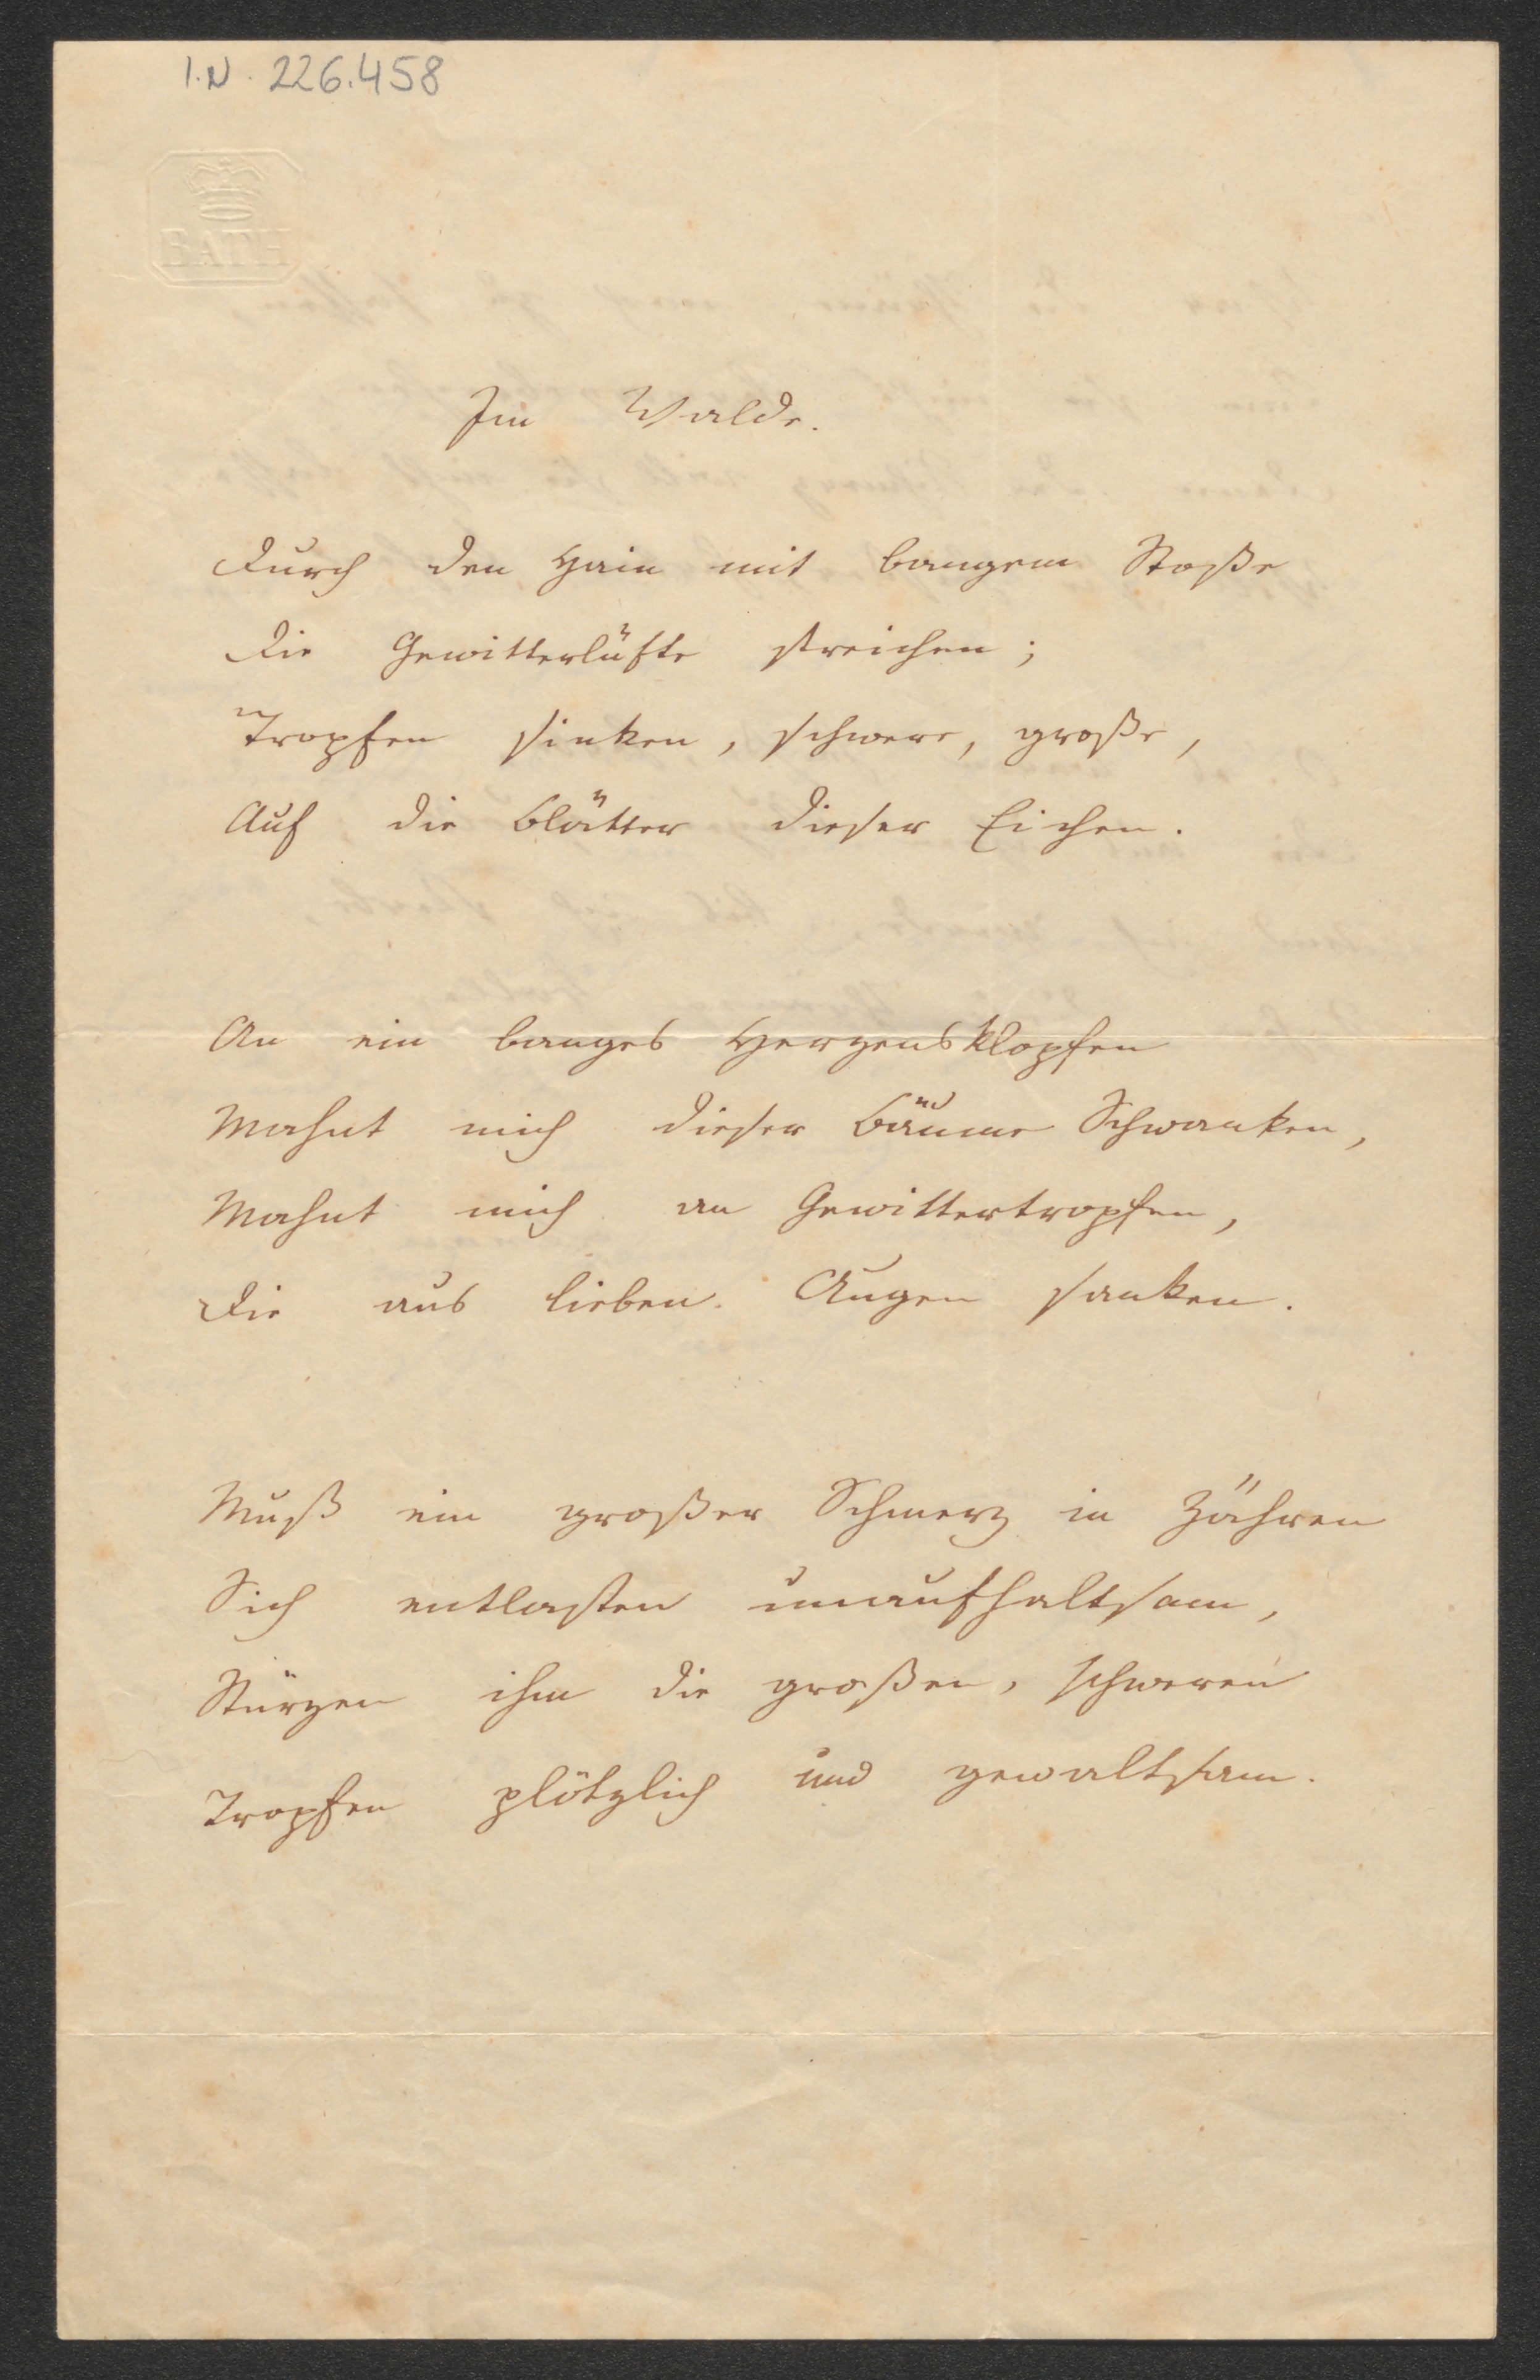 I.N. 226.458
BATH
Im Walde.
Durch den Hain mit bangem Stoße
Die Gewitterlüfte streichen;
Tropfen sinken, schwere, große,
Auf die Blätter dieser Eichen.
An ein banges Herzensklopfen
Mahnt mich dieser Bäume Schwanken,
Mahnt mich an Gewittertropfen,
Die aus lieben Augen sanken.
Muß ein großer Schmerz in Zähren
Sich entlasten unaufhaltsam,
Stürzen ihm die großen, schweren
Tropfen plötzlich und gewaltsam.